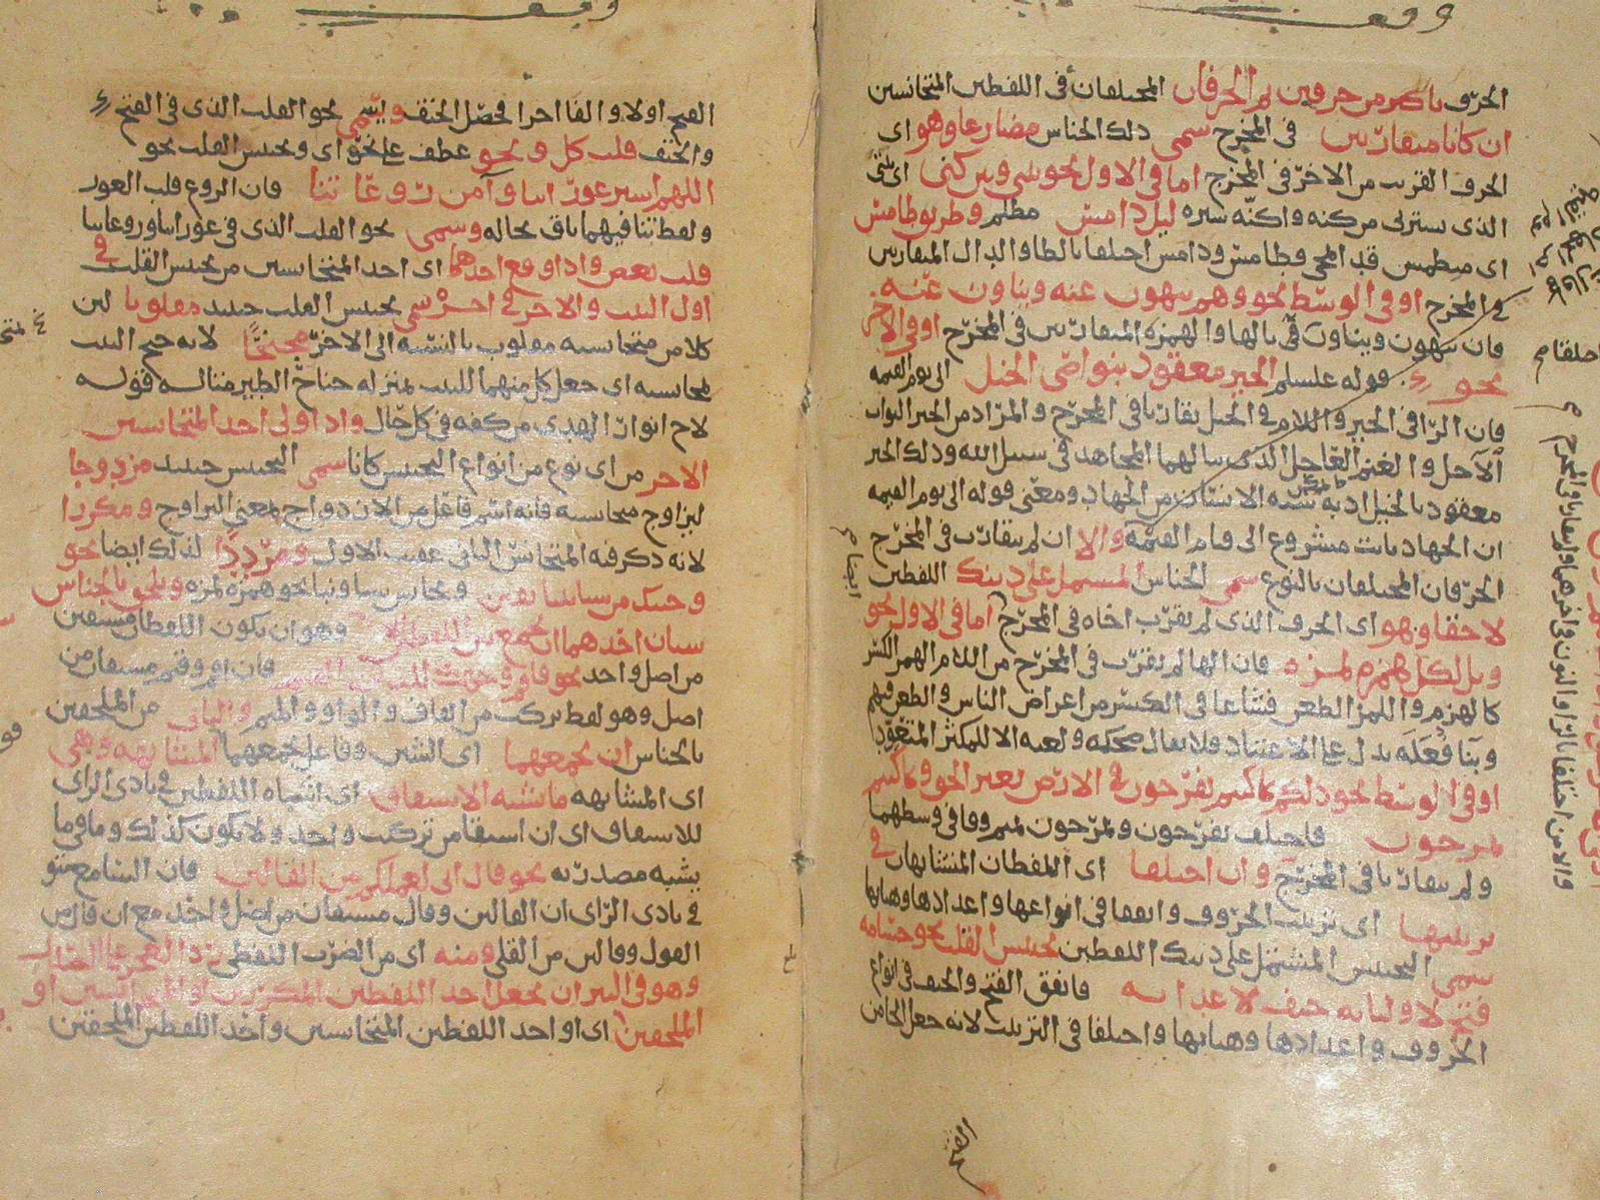 وقف
الحرف باكثر من حرفين ثم الحرفان المختلفان في اللفظين المتجانسين
ان كانا متقاربين في المخرج سمى ذلك الجناس مضارعا وهو اى
الحرف القريب من الاخر في المخرج اما في الاول نحو بيني وبين كنى اى بيتى
الذى يستر لى من كنه واكنه ستره ليل دامس مظلم وطريق طامس
اى منطمس قد المحى وطامس ودامس اختلفا بالطا والدال المتقاربين
في المخرج او في الوسط نحو وهم ينهون عنه ويناون عنه
فان ينهون ويناون في بالها والهمزة المتقاربين في المخرج او في الاخر
نحو قوله علسلم الخير معقود بنواصى الخيل الى يوم القيمه
فان الرا في الخير واللام في الخيل تقاربا في المخرج والمراد من الخير الثواب
الآجل والغنم العاجل الذى ينالهما المجاهد في سبيل الله وذلك الخير
معقود بالخيل اذ به الانسان من الجهاد ومعنى قوله الى يوم القيمه
ان الجهاد ثابت مشروع الى قيام القيمة والا ان لم يتقارب في المخرج
الحرفان المختلفان بالنوع سمى الجناس المشتمل على ذينك اللفظين
لاحقا وهو اى الحرف الذى لم يقرب اخاه في المخرج اما في الاول نحو
ويل لكل همزه لمزه فان الها لم يقرب في المخرج من اللام الهمز الكسر
كالهزم واللمز الطعن فشاعا في الكسر من اعراض الناس والطعن فيهم
وبنا فُعَلَه يدل على الاعتياد فلا يقال ضحكه ولعبه الا للمكثر المتعود
او في الوسط نحو ذلكم بما كنتم تفرحون في الارض بغير الحق وبما كنتم
تمرحون فاختلف تفرحون وتمرحون بميم وفا في وسطهما
ولم يتقاربا في المخرج وان اختلفا اى اللفظان المتشابهان في
ترتيبها اى ترتيب الحروف واتفقا في انواعها واعدادها وهيئاتها
سمى التجنيس المشتمل على ذينك اللفظين تجنيس القلب نحو حسامه
فتح لاوليائه حتف لاعدائه فاتفق الفتح والحتف في انواع
الحروف واعدادها وهيئاتها واختلفا في الترتيب لانه جعل الحا من
الفتح
اختلفا م
والا من اختلفا بالرا والنون في اخرهما ولم يتقاربا في المخرج
وقف
الفتح اولا والفا اخرا فحصل الحتف ويسمى نحو القلب الذى في الفتح
والحتف قلب كل ونحو عطف على نحو اى وتجنيس القلب نحو
اللهم استر عوراتنا وآمن روعاتنا فان الروع قلب العور
ولفظ تنا فيهما باق بحاله وسمى نحو القلب الذى في عوراتنا وروعاتنا
قلب بعض واذا وقع احدهما اى احد المتجانسين من تجنيس القلب في
اول البيت والاخر في اخره سمى تجنيس القلب حينئذ مقلوبا لان
كلا من متجانسيه مقلوب بالنسبه الى الاخر مجنحًا لانه جنح البيت
بمتجانسيه اى جعل كل منهما للبيت بمنزله جناح الطير مثاله قوله
لاح انوار الهدى من كفه في كل حال واذا ولى احد المتجانسين
الاخر من اى نوع من انواع التجنيس كانا سمى التجنيس حينئذ مزدوجا
ليزاوج متجانسيه فانه اسم فاعل من الازدواج بمعنى التزاوج ومكررا
لانه ذكر فيه المتجانس الثانى عقيب الاول ومرددًا لذلك ايضا نحو
وجئتك من سبا بنبا يقين وتجانس سبا ونبا نحو همزه لمزه ويلحق بالجناس
شيئان احدهما ان يجمع بين اللفظين وهو ان يكون اللفظان مشتقين
من اصل واحد نحو فاقم وجهك للدين القيم فان اقم وقيم مشتقان من
اصل وهو لفظ تركب من القاف والواو والميم والثانى من الملحقين
بالجناس ان يجمعهما اى الشيئين وفاعل يجمعهما المتشابهه وهى
اى المشابهه ما يشبه الاشتقاق اى اشتباه اللفظين في بادى الراى
للاشتقاق اى ان اشتقا من تركيب واحد ولا يكون كذلك وما في ما
يشبه مصدريه نحو قال انى لعملكم من القالين فان السامع يتو
في بادى الراى ان القالين وقال مشتقان من اصل واحد مع ان قال من
القول وقالين من القلى ومنه اى من الضرب اللفظى رد العجز على الصدر
وهو في النثر ان يجعل احد اللفظين المكررين او المتجانسين او
الملحقين اى او احد اللفظين المتجانسين واحد اللفظين الملحقين